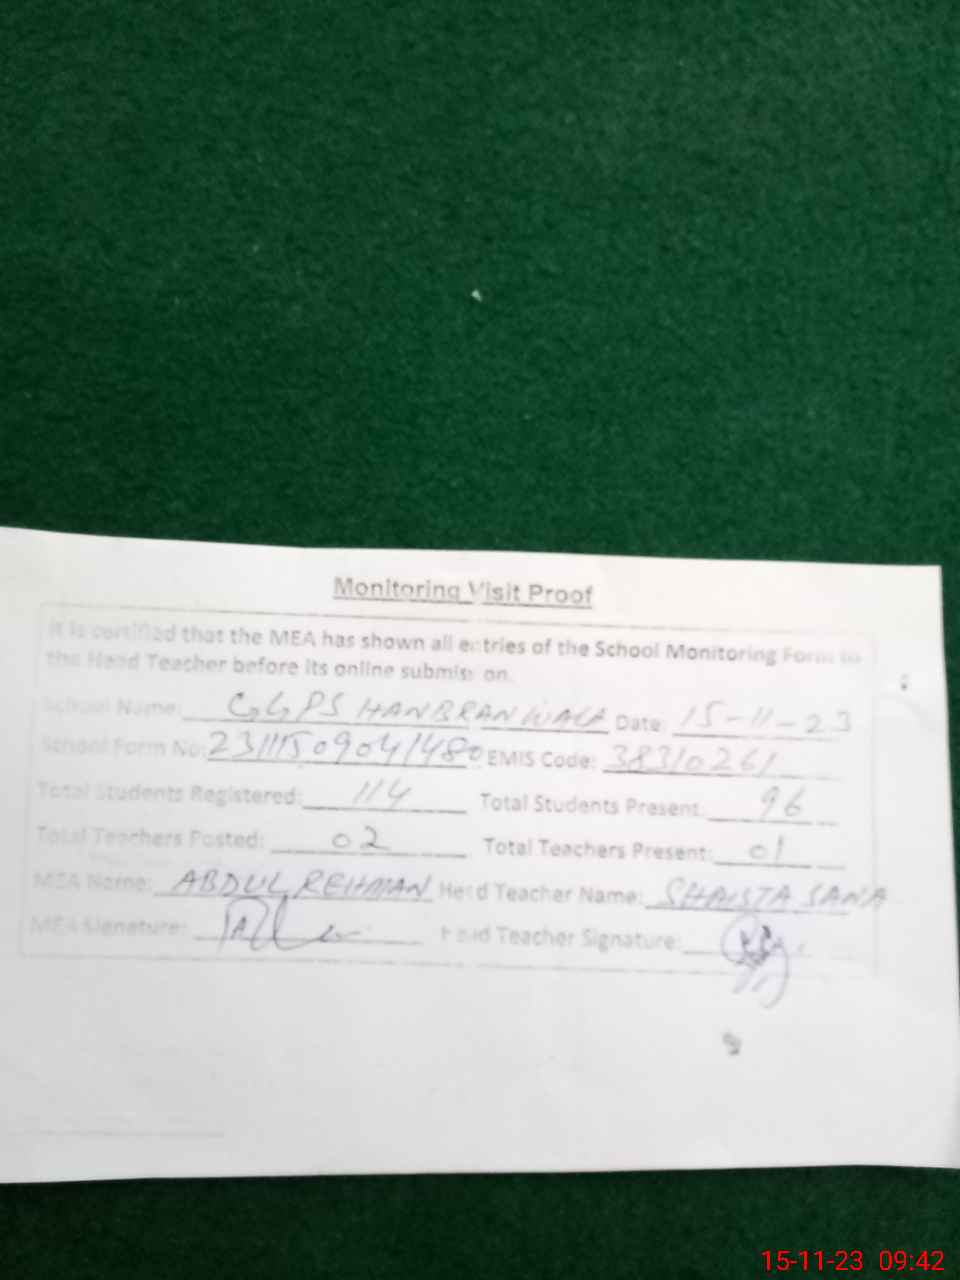 Monitoring Visit Proof
It is certified that the MEA has shown all entries of the School Monitoring Form to
the Head Teacher before its online submission.
School Name: GGPS HANBRANWALA Date: 15-11-23
School Form No: 23111509041480 EMIS Code: 38310261
Total Students Registered: 114 Total Students Present: 96
Total Teachers Posted: 02 Total Teachers Present: 01
MEA Name: ABDUL REHMAN Head Teacher Name: SHAISTA SANA
MEA Signature: Head Teacher Signature:
15-11-23 09:42